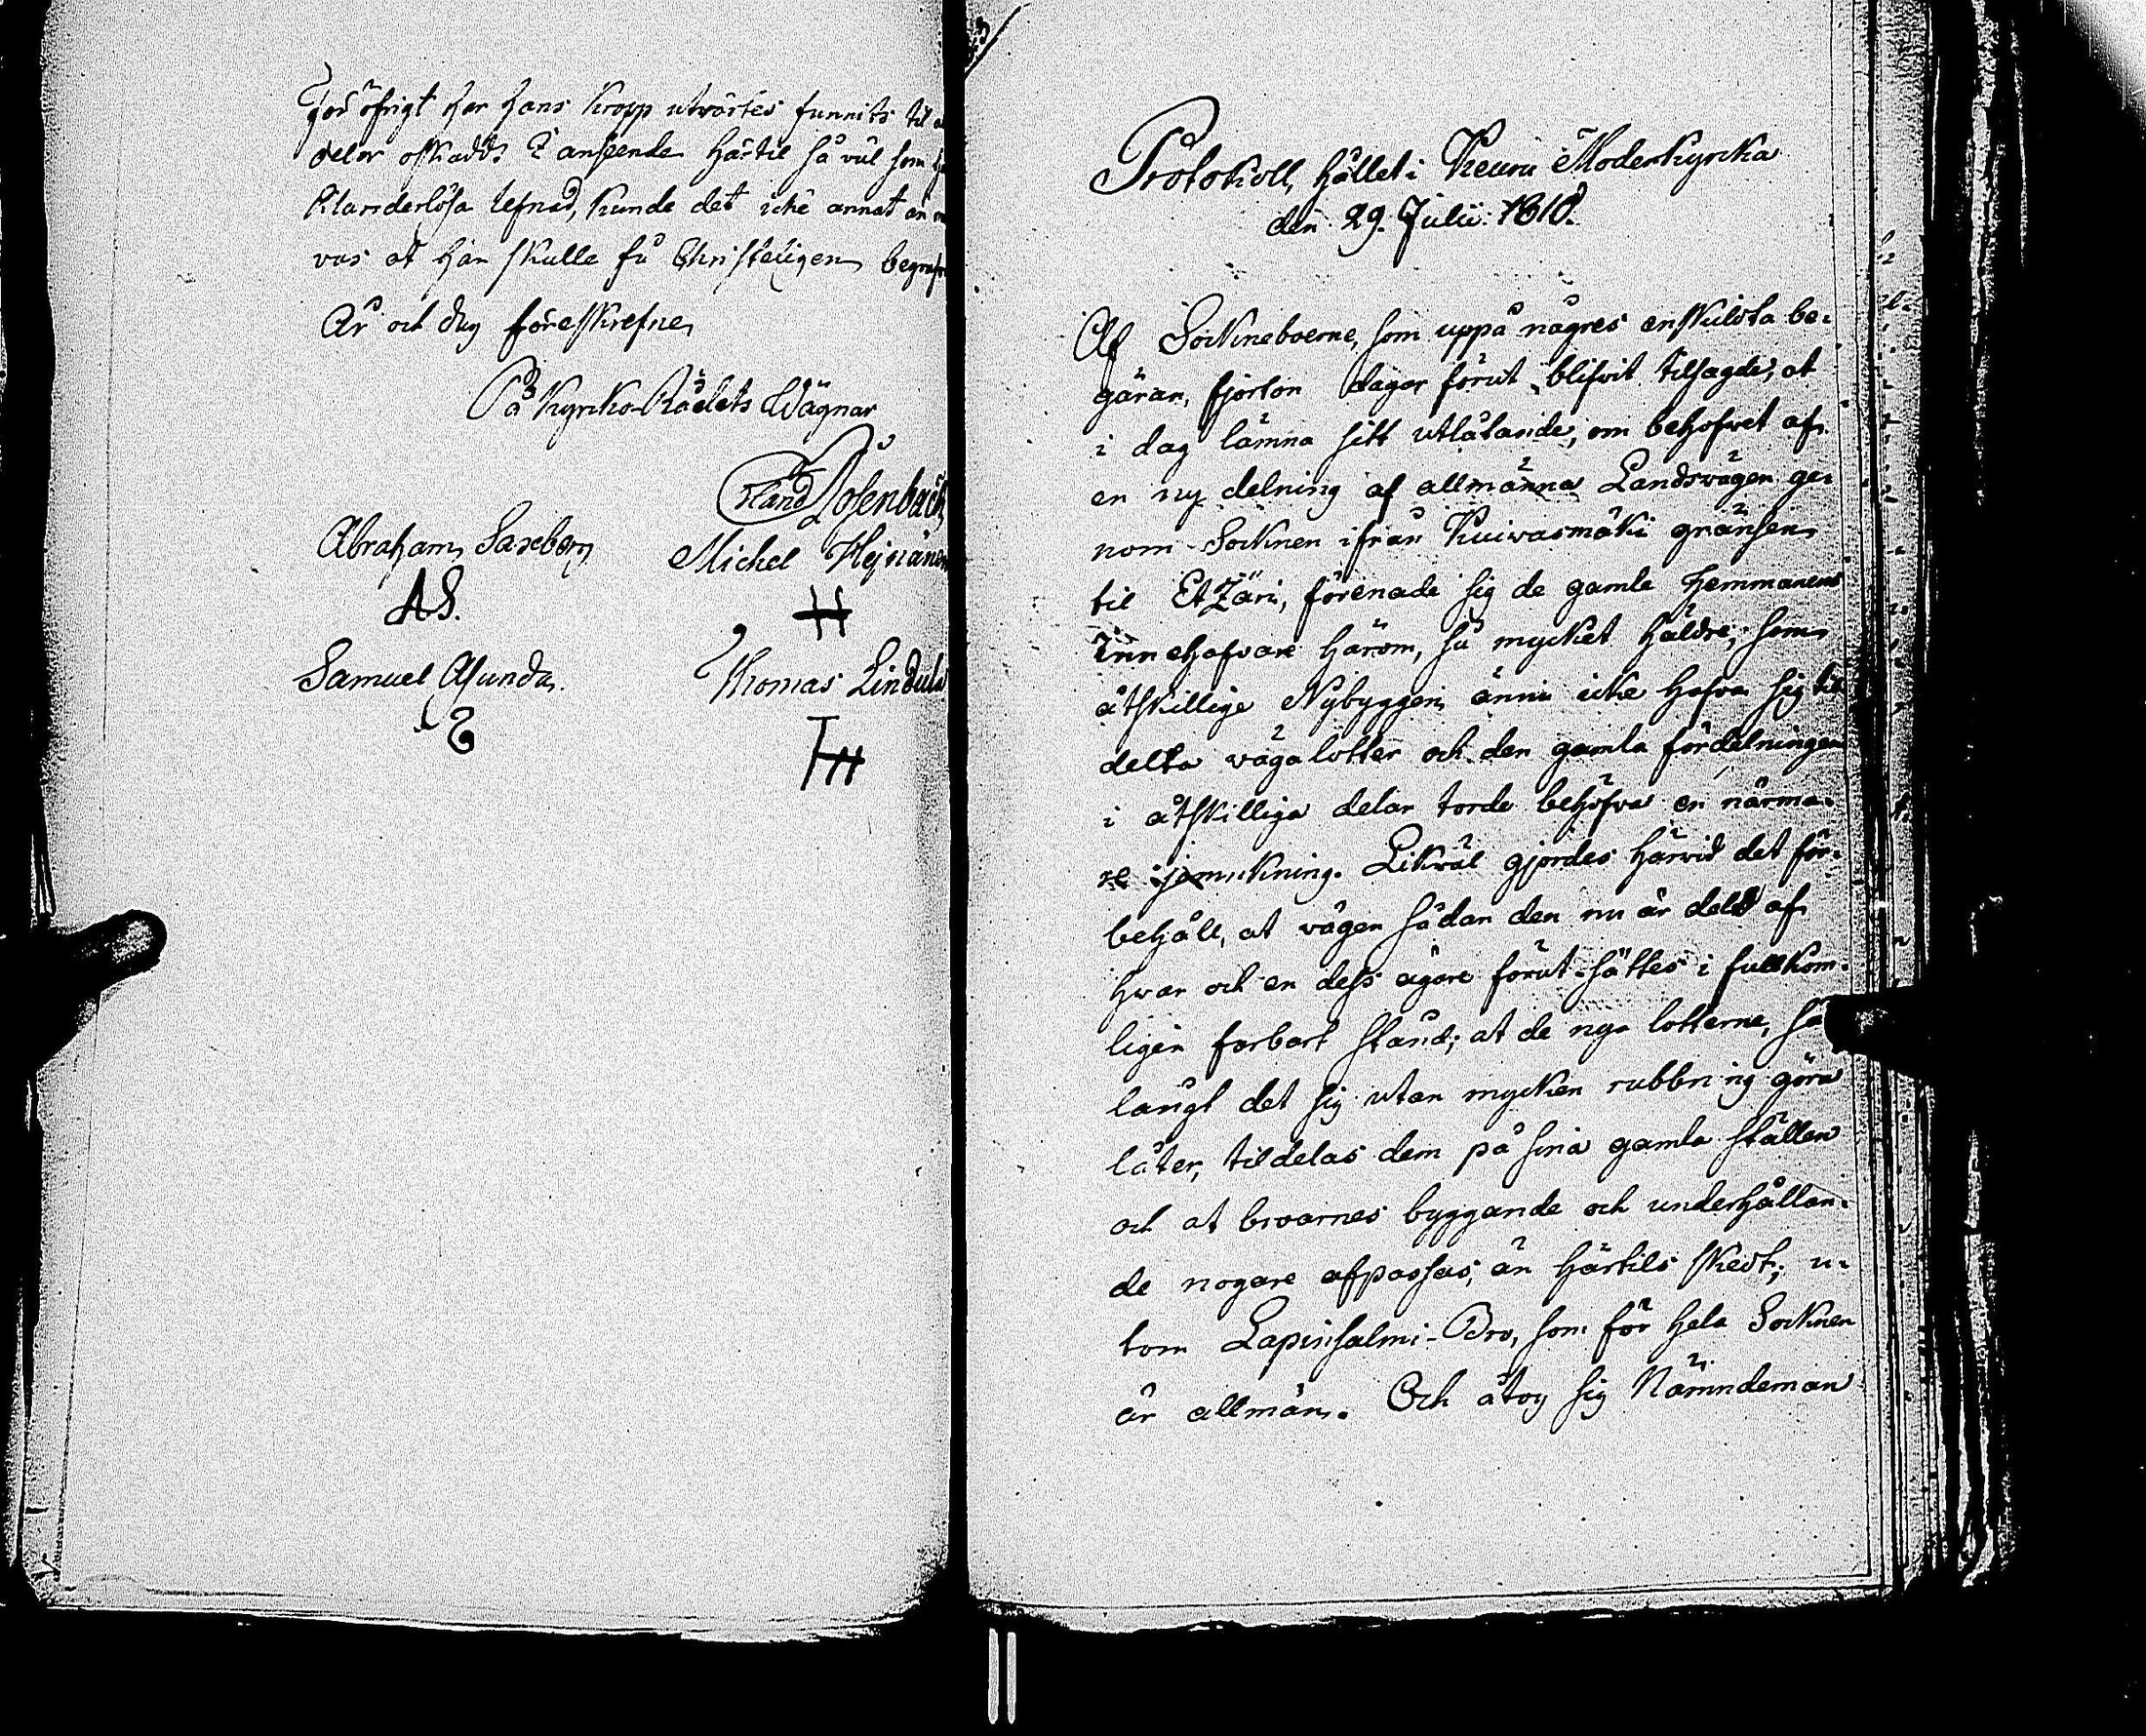 För öfrigt har hans kropp utvärtes funnits til
delar oskadd. I anseende härtil så väl som
klanderlösa lefnad, kunde det icke annat än
vas at han skulle få Christeligen
År och dag föreskrefne
På Kyrko-Rådets Wägnar
Erland Rosenback
Abraham Saxberg Michel Hejnänen
AS.
Samuel Asunda. Thomas Lindula
Protokoll, hållet i Keuru Moderkyrcka
den 29. Julii. 1810.
Af Socknéboerne, som uppå någres enskildta be-
gäran, fjorton dagar förut blifvit tilsagde, at
i dag lämna sitt utlåtande, om behofvet af
en ny delning af allmänna Landsvägen ge-
nom Socknen ifrån Kuivasmäki gränsen
til Etzäri, förenade sig de gamla Hemmanens
Innehafvare härom, så mycket häldre, som
åtskillige Nybyggen ännu icke hafva sig til
delta vägalotter och den gamla fördelningen
i åtskilliga delar torde behöfva en närma-
re jämnkning. Likväl gjordes härvid det för-
behåll, at vägen sådan den nu är deld af
hwar och en dess ägare förut sättes i fullkom-
ligen farbart stånd; at de nya lotterne, så
långt det sig utan mycken rubbning göra
låter, tildelas dem på sina gamla ställen
och at broarnes byggande och underhållan-
de nogare afpassas, än härtils skedt; u-
tom Lapinsalmi-Bro, som för hela Socknen
är allmän. Och åtog sig Nämndeman